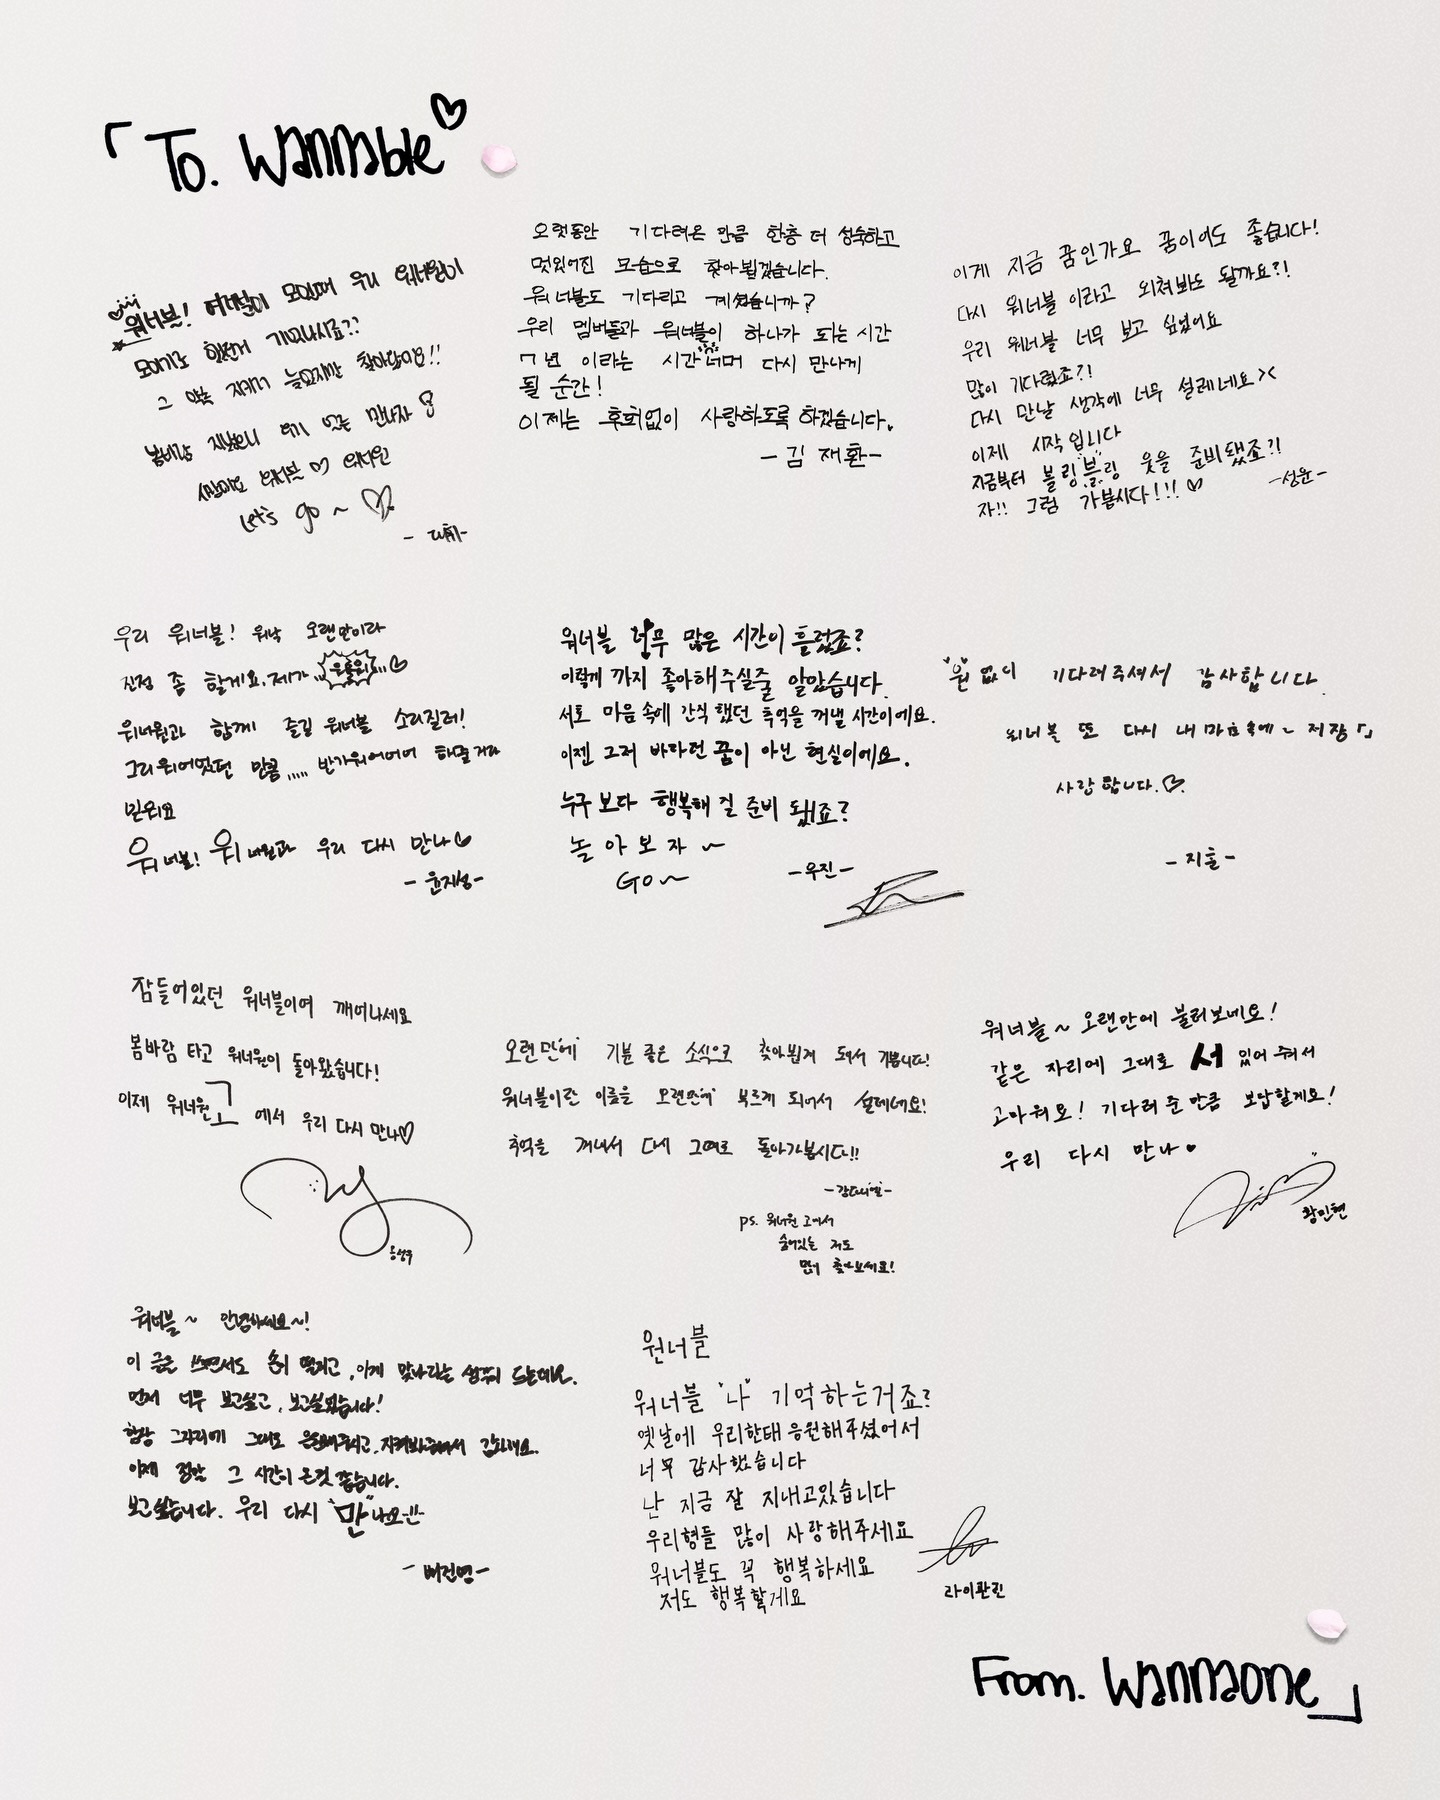 「To. Wannable♡
워너블! 여러분이 모일때 우리 워너원이
모이기로 했던거 기억나시죠??
그 약속 지키러 늦었지만 찾아왔어요!!
봄바람 지났으니 여기 있는 만나자
사랑해요 워너블♡ 워너원
Let's go ~ ♡
- 대휘-
오랫동안 기다려온 만큼 한층 더 성숙하고
멋있어진 모습으로 찾아뵙겠습니다.
워너블도 기다리고 계셨습니까?
우리 멤버들과 워너블이 하나가 되는 시간
7년 이라는 시간 너머 다시 만나게
될 순간!
이제는 후회없이 사랑하도록 하겠습니다.
- 김재환-
이게 지금 꿈인가요 꿈이어도 좋습니다!
다시 워너블 이라고 외쳐봐도 될까요?!
우리 워너블 너무 보고 싶었어요
많이 기다렸죠?!
다시 만날 생각에 너무 설레네요><
이제 시작입니다
지금부터 볼링"블"링 웃을 준비됐죠?!
자!! 그럼 가봅시다!!!♡
-성운-
우리 워너블! 워낙 오랜만이라
진정 좀 할게요. 제가...♡
워너원과 함께 즐길 워너블 소리질러!
그리워어었던 만큼..... 반가워어어어 해줄거라
믿어요
워너블! 워너원과 우리 다시 만나♡
- 윤지성-
워너블 너무 많은 시간이 흘렀죠?
이렇게 까지 좋아해주실줄 알았습니다.
서로 마음 속에 간직했던 추억을 꺼낼 시간이에요.
이젠 그저 바라던 꿈이 아닌 현실이에요.
누구보다 행복해질 준비 됐죠?
놀아보자 ~
Go~
-우진-
'원'없이 기다려주셔서 감사합니다.
워너블 또 다시 내 마음속에~ 저장
사랑합니다.♡
- 지훈-
잠들어있던 워너블이여 깨어나세요
봄바람 타고 워너원이 돌아왔습니다!
이제 워너원고에서 우리 다시 만나♡
옹성우
오랜만에 기분 좋은 소식으로 찾아뵙게 되어서 기쁩니다!
워너블이란 이름을 오랜만에 부르게 되어서 설레네요!
추억을 꺼내서 다시 그때로 돌아가봅시다!!
-강다니엘-
ps. 워너원 고에서
숨어있는 저도
많이 찾아보세요!
워너블~ 오랜만에 불러보네요!
같은 자리에 그대로 서 있어 줘서
고마워요! 기다려 준 만큼 보답할게요!
우리 다시 만나♥
황민현
워너블~ 안녕하세요~!
이 글을 쓰면서도 손이 떨리고, 이게 맞나라는 생각이 드는데요.
먼저 너무 보고싶고, 보고싶었습니다!
항상 그자리에 그대로 응원해주시고, 지켜봐주셔서 감사해요.
이제 정말 그 시간이 온것 같습니다.
보고싶습니다. 우리 다시 "만"나요!!
- 배진영-
원너블
워너블 "나" 기억하는거죠?
옛날에 우리한태 응원해주셨어서
너무 감사했습니다
난 지금 잘 지내고있습니다
우리형들 많이 사랑해주세요
워너블도 꼭 행복하세요
저도 행복할게요
라이관린
From. Wannaone」